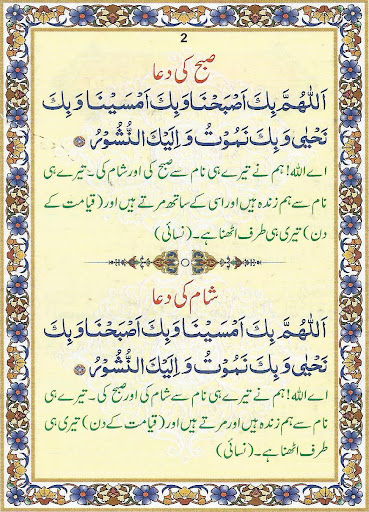 2
صبح کی دعا
اَللّٰهُمَّ بِكَ اَصْبَحْنَا وَبِكَ اَمْسَيْنَا وَبِكَ
نَحْيٰى وَبِكَ نَمُوْتُ وَ اِلَيْكَ النُّشُوْرُ
اے اللہ! ہم نے تیرے ہی نام سے صبح کی اور شام کی۔ تیرے ہی
نام سے ہم زندہ ہیں اور اسی کے ساتھ مرتے ہیں اور (قیامت کے
دن) تیری ہی طرف اٹھنا ہے۔ (نسائی)
شام کی دعا
اَللّٰهُمَّ بِكَ اَمْسَيْنَا وَبِكَ اَصْبَحْنَا وَبِكَ
نَحْيٰى وَبِكَ نَمُوْتُ وَ اِلَيْكَ النُّشُوْرُ
اے اللہ! ہم نے تیرے ہی نام سے شام کی اور صبح کی۔ تیرے ہی
نام سے ہم زندہ ہیں اور مرتے ہیں اور (قیامت کے دن) تیری ہی
طرف اٹھنا ہے۔ (نسائی)